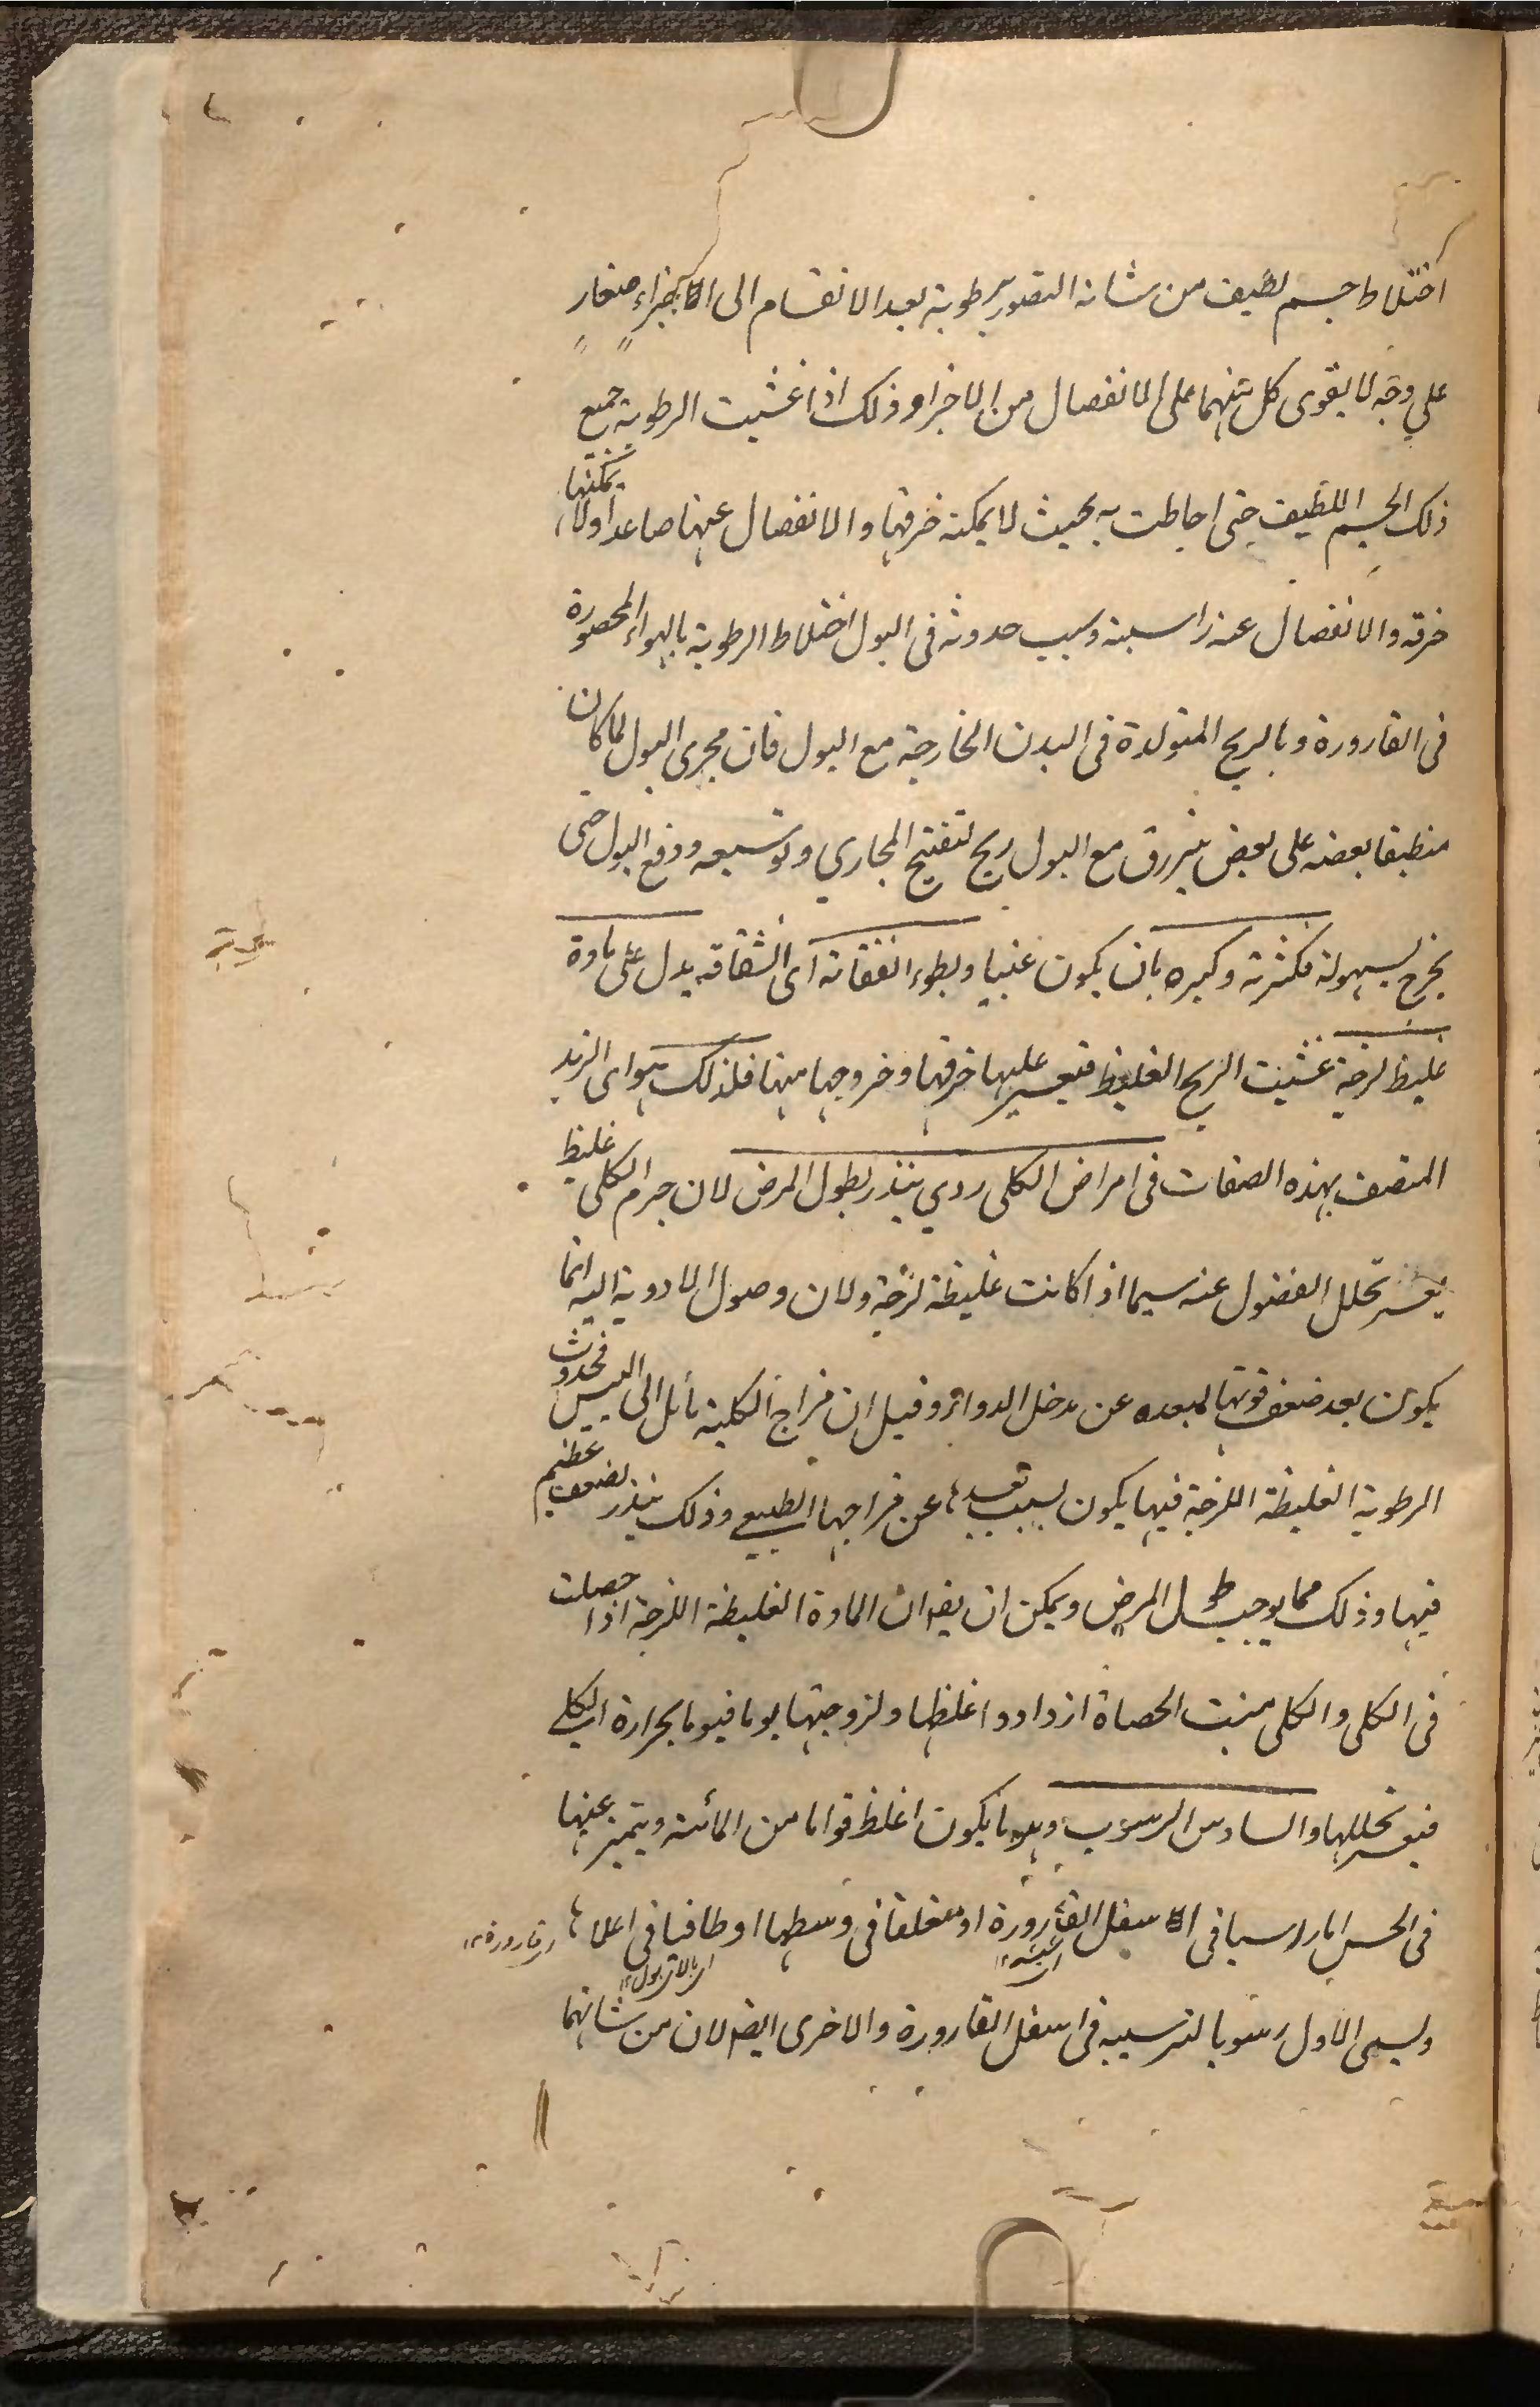 اختلاط جسم لطيف من شانه التصور برطوبة بعد الانقسام الى الاجزاء صغار
على وجه لا يقوى كل منهما على الانفصال من الاخر وذلك اذا غشيت الرطوبة جميع
ذلك الجسم اللطيف حتى احاطت به بحيث لا يمكنه خرقها والانفصال عنها صاعدا ولا يمكنها
خرقه والانفصال عنه راسبة وسبب حدوثه فى البول اختلاط الرطوبة بالهواء المحصورة
فى القارورة وبالريح المتولدة فى البدن الخارجة مع البول فان مجرى البول لما كان
منطبقا بعضه على بعض ينزرق مع البول ريح لتفتيح المجاري وتوسيعه ودفع البول حتى
يخرج بسهولة فكثرته وكبره بان يكون عنبيا وبطوء انفقائه اى انشقاقه يدل على مادة
غليظ لزجة غشيت الريح الغليظ فيعسر عليها خرقها وخروجها منها فلذلك هو اى الزبد
المتصف بهذه الصفات فى امراض الكلى ردي ينذر بطول المرض لان جرم الكلى غليظ
يعسر تحلل الفضول عنه سيما اذا كانت غليظة لزجة ولان وصول الادوية اليه انما
يكون بعد ضعف قوتها لبعده عن مدخل الدواء وقيل ان مزاج الكلية مائل الى اليبس فحدوث
الرطوبة الغليظة اللزجة فيها يكون بسبب بعدها عن مزاجها الطبيعي وذلك ينذر لضعف عظيم
فيها وذلك مما يوجب طول المرض ويمكن ان يقه ان المادة الغليظة اللزجة اذا حصلت
فى الكلى والكلى منبت الحصاة ازداد وا غلظها ولزوجتها يوما فيوما بحرارة الكلى
فيعسر تحللها والسادس الرسوب وهو ما يكون اغلظ قواما من المائية ويتميز عنها
فى الحس اما راسبا فى الاسفل القارورة او متعلقا فى وسطها او طافيا فى اعلاها
ويسمى الاول رسوبا لترسيبه فى اسفل القارورة والاخرى ايضه لان من شانهما